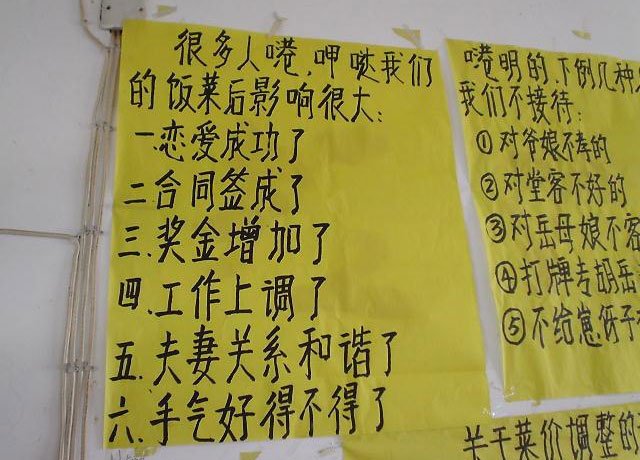 很多人嗯,呷哒我们
的饭菜后影响很大:
一.恋爱成功了
二.合同签成了
三.奖金增加了
四.工作上调了
五.夫妻关系和谐了
六.手气好得不得了
嗯明的.下例几种
我们不接待:
①对爷娘不孝的
②对堂客不好的
③对岳母娘不客
④打牌专胡岳
⑤不给崽伢子
关于菜价调整的